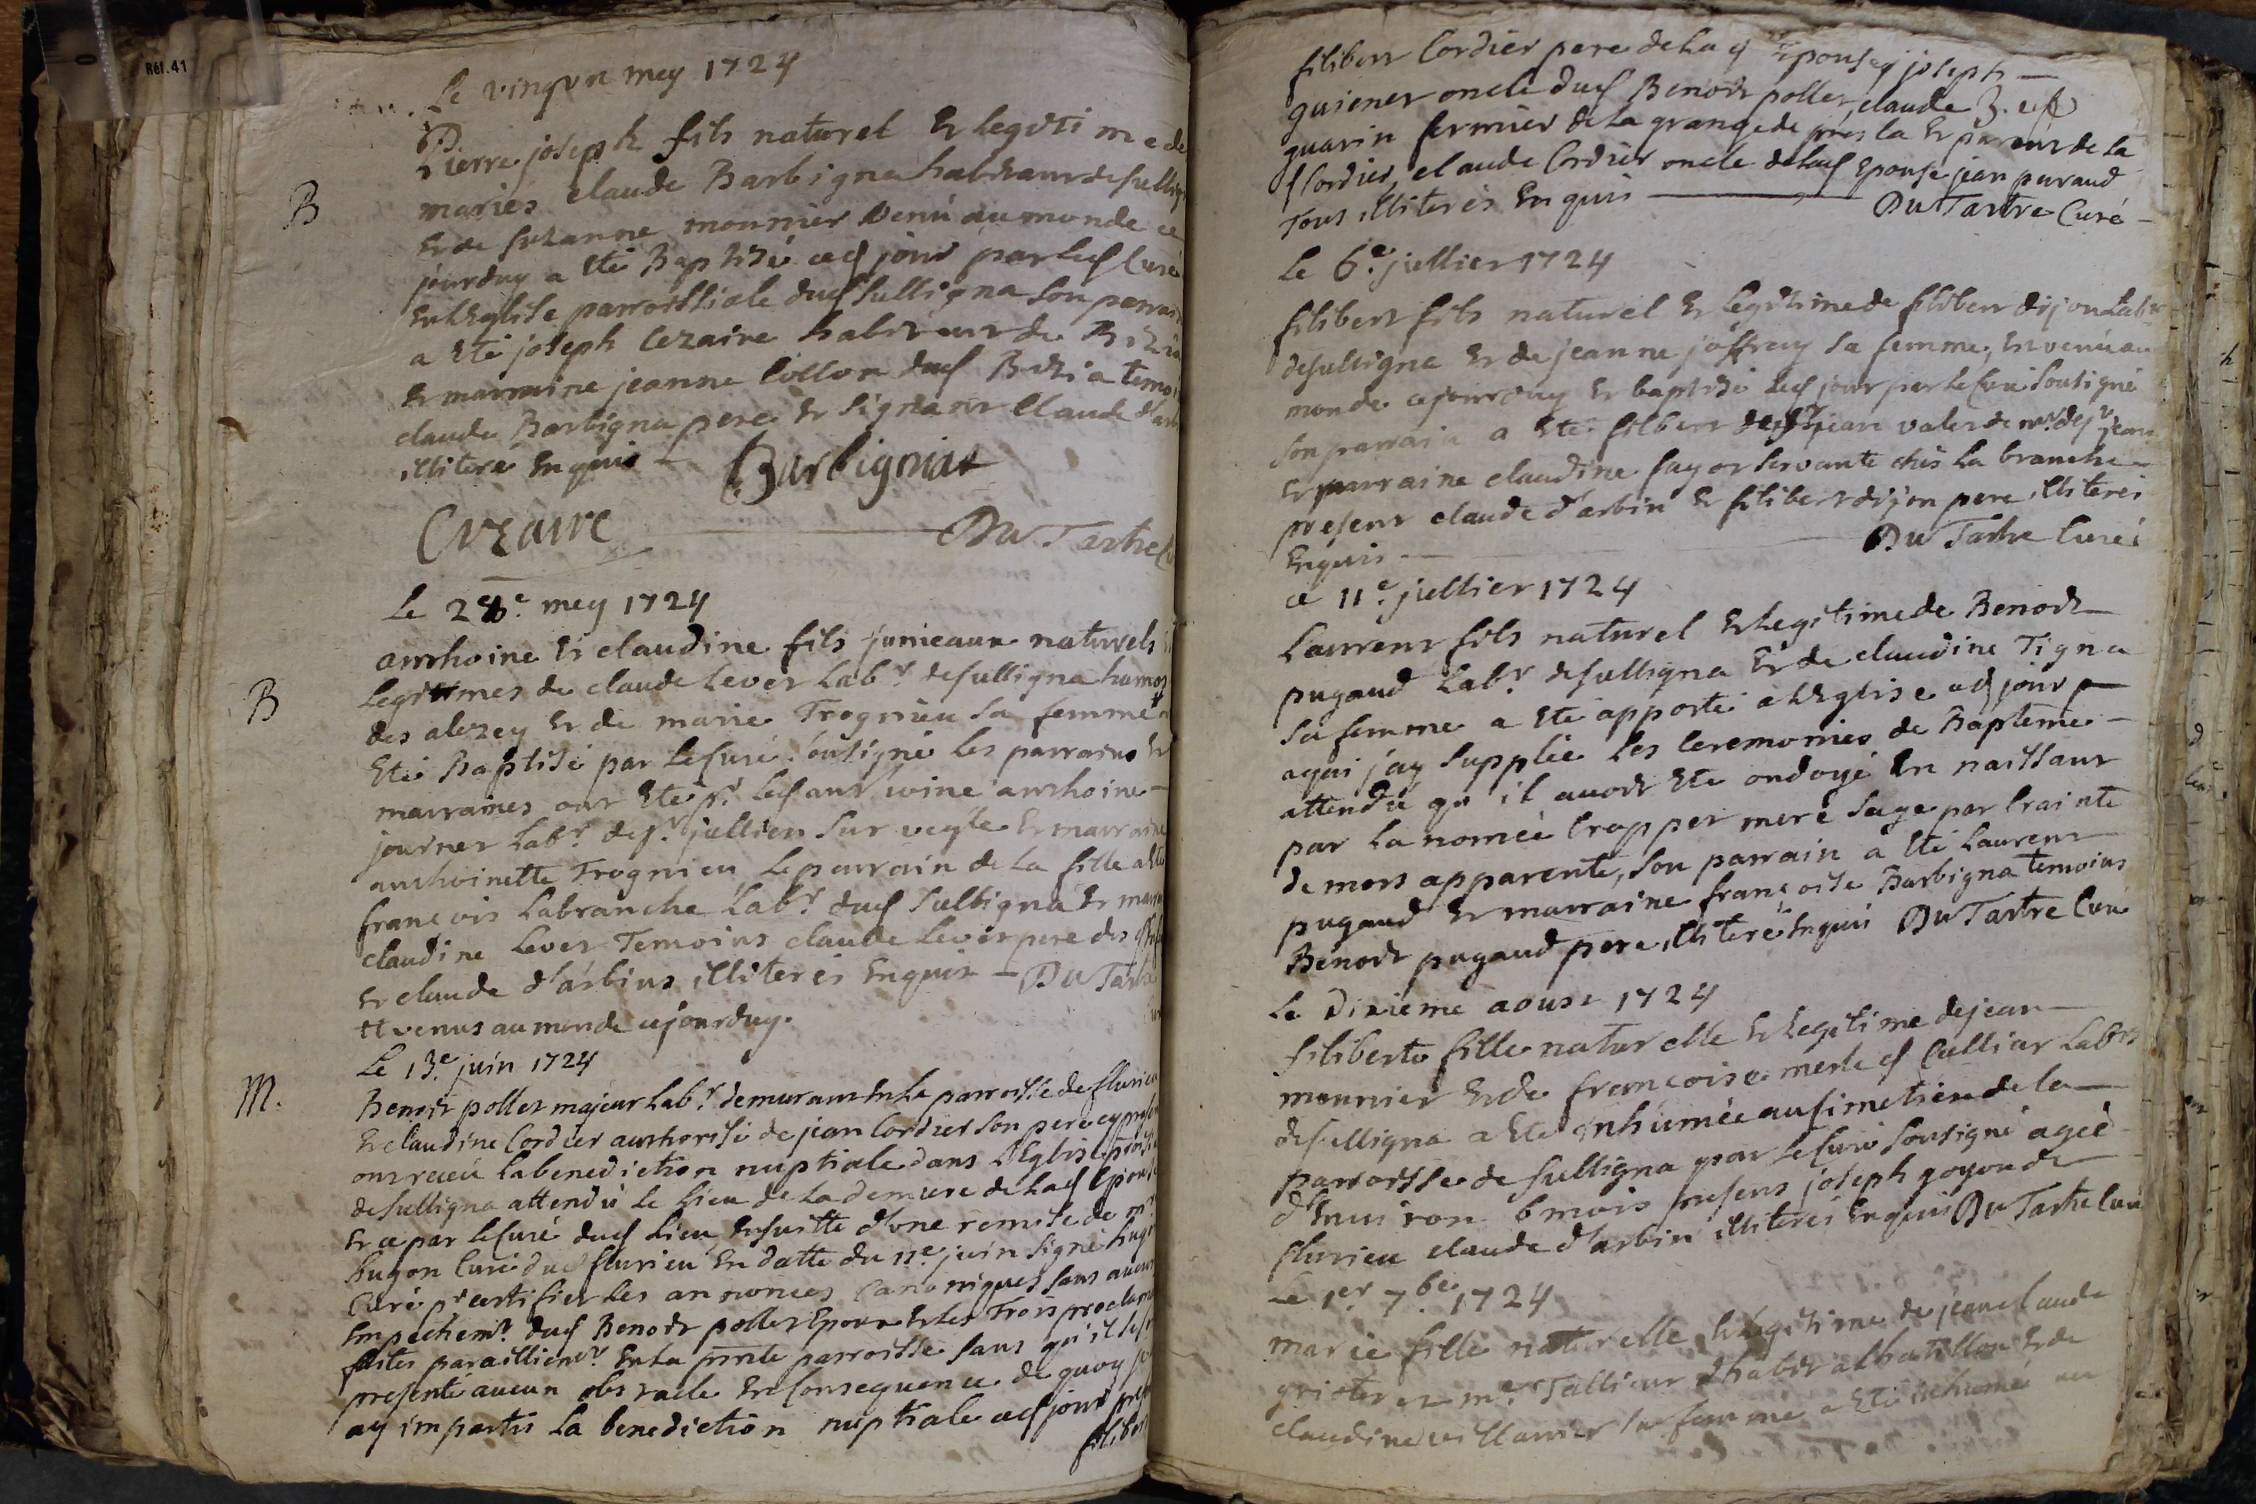 Réf. 41
Le vingt un mey 1724
Pierre joseph fils naturel et legitime de
B
mariés claude Barbigna habitant de sulligna
et de suzanne mounier venu au monde ce
jourduy a ete Baptisé ced jour par led Curé
en lEglise parroissiale dud sulligna son parrain
a ete joseph Cezaire habitant de
et marraine jeanne Collon dud temoins
claude Barbigna pere et signant Claude d'arbin
illiteré enquis
Barbigniat
Cezaire Du Tartre
Le 28e mey 1724
anthoine et claudine fils jumeaux naturels
B
legitimes de claude Lever Labr de sulligna hameau
des alezey et de marie Trognieu sa femme
ete Baptisé par le Curé soutigné les parrains et
marraines ont ete pr led ant oine anthoine
journet Labr de st jullien sur veyle et marraine
anthoinette Trognieu Le parrain de la fille a ete
françois Labranche Labr dud sulligna et marraine
claudine Lever Temoins claude Lever pere des
et claude d'arbins illiterés Enquis — Du Tartre
tt venus au monde cejourduy.
Le 13e juin 1724
M.
Benoit pollet majeur Labr demurant en la parroisse de flurieu
et claudine Cordier authorisé de jean Cordier son pere cy present
ont receu la benediction nuptiale dans l'Eglise
de sulligna attendu le lieu de la demure de lad Epouse
et ce par le Curé dud Lieu ensuitte d'une remise de mr
hugon Curé dud flurieu en datte du 11e juin signé hugon
Curé pr certifier les annonces Canoniques sans aucun
Empechemt dud Benoit pollet Epoux et les Trois proclam
faites paraillemt en la pnte parroisse sans qu'il se soit
presenté aucun obstacle en Consequence de quoy je
ay impartis la benediction nuptiale ced jour
filibert
filibert Cordier pere de la d epouse, joseph —
guienet oncle dud Benoit pollet, claude
guarin fermier de la grange de pres la et parent de la
Cordier, claude Cordier oncle de lad Epouse jean puraud
Tous illiterés Enquis — Du Tartre Curé —
Le 6e juillier 1724
filibert fils naturel et legitime de filibert dijon Labr
de sulligna et de jeanne joffray sa femme, est venu au
monde cejourduy et baptisé led jour par le Curé soutigné
son parrain a ete filibert valet de mr de st jean
et marraine claudine fayot servante chés la branche —
present claude d'arbin et filibert dijon pere illiterés
Enquis — Du Tartre Curé
ce 11e juillier 1724
Laurent fils naturel et legitime de Benoit —
pugaud Labr de sulligna et de claudine Tigna
sa femme a ete apporté a lEglise ced jour
aqui j'ay supplée les Ceremonies de Bapteme —
attendu qu'il avoit ete ondoyé en naissant
par la nomée Crappet mere sage par Crainte
de mort apparente, son parrain a ete Laurent
pugaud et marraine françoise Barbigna temoins
Benoit pugaud pere, illiteré Enquis Du Tartre Curé
Le Dixieme aoust 1724
filiberte fille naturelle et legitime de jean —
mounier et de françoise merle d Culliat Labrs
de sulligna a ete inhumée au simetiere de la —
parroisse de sulligna par le Curé soutigné agée
d'Environ 6 mois presens joseph goyon de
flurieu claude d'arbin illiterés Enquis Du Tartre Curé
Le 1er 7bre 1724
marie fille naturelle et legitime de jean claude
et me Tallieur d'habit a Chatillon et de
claudine villannier sa femme a ete inhumé au